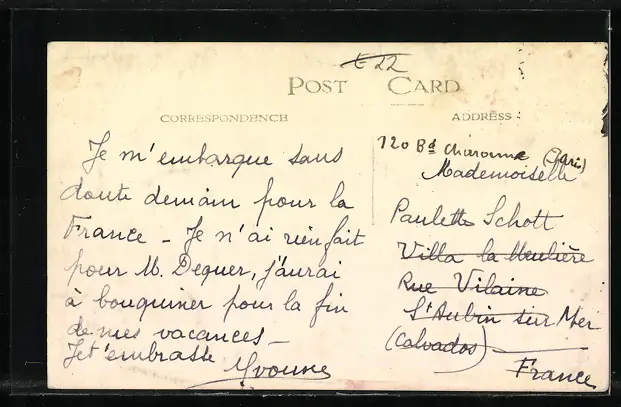 E 22
POST CARD
CORRESPONDENCE
ADDRESS
Je m'embarque sans
doute demain pour la
France - Je n'ai rien fait
pour M. Dequer, j'aurai
à bouquiner pour la fin
de mes vacances -
Je t'embrasse
Yvonne
120 Bd Charonne (Paris)
Mademoiselle
Paulette Schott
Villa la Meulière
Rue Vilaine
St Aubin sur Mer
(Calvados)
France